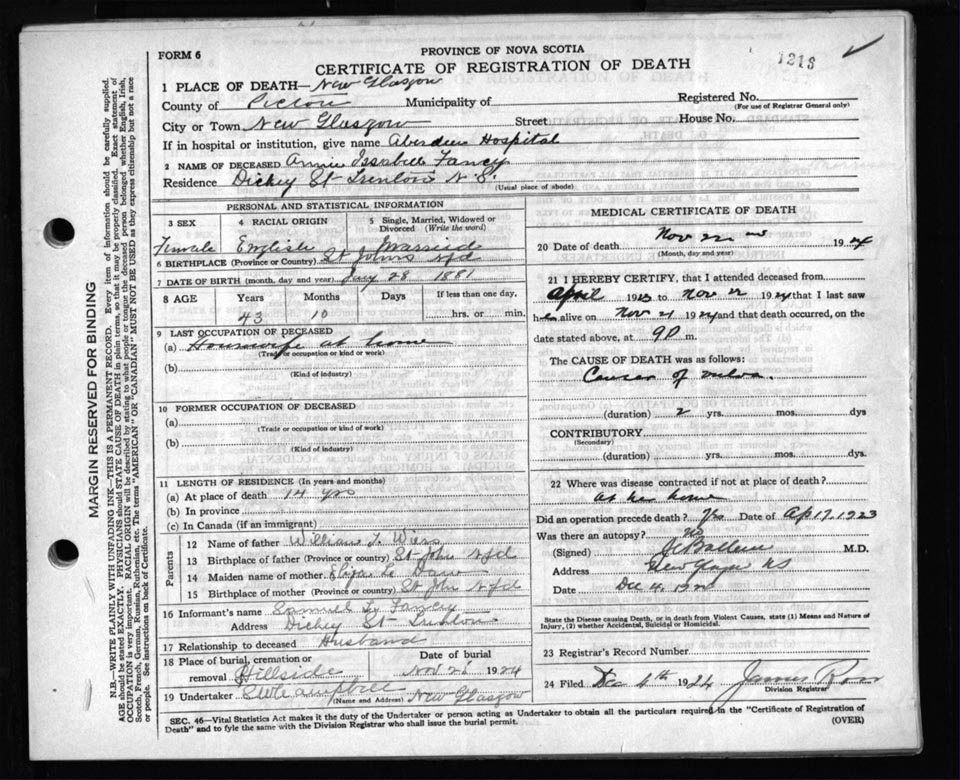 FORM 6
PROVINCE OF NOVA SCOTIA
CERTIFICATE OF REGISTRATION OF DEATH
1213
1 PLACE OF DEATH—New Glasgow
County of Pictou Municipality of Registered No.
(For use of Registrar General only)
City or Town New Glasgow Street House No.
If in hospital or institution, give name Aberdeen Hospital
2 NAME OF DECEASED Annie Issabell Fancy
Residence Dickey St Trenton N. S.
(Usual place of abode)
PERSONAL AND STATISTICAL INFORMATION
3 SEX 4 RACIAL ORIGIN 5 Single, Married, Widowed or Divorced (Write the word)
Female English Married
6 BIRTHPLACE (Province or Country) St Johns Nfd
7 DATE OF BIRTH (month, day and year) Jany 28 1881
8 AGE Years Months Days If less than one day,
43 10 hrs. or min.
9 LAST OCCUPATION OF DECEASED
(a) Housewife at home
(Trade or occupation or kind or work)
(b)
(Kind of industry)
10 FORMER OCCUPATION OF DECEASED
(a)
(Trade or occupation or kind of work)
(b)
(Kind of industry)
11 LENGTH OF RESIDENCE (In years and months)
(a) At place of death 14 yrs
(b) In province
(c) In Canada (if an immigrant)
Parents
12 Name of father William T.
13 Birthplace of father (Province or country) St John Nfd
14 Maiden name of mother Eliza E Daw
15 Birthplace of mother (Province or country) St John Nfd
16 Informant's name Samuel Fancy
Address Dickey St Trenton
17 Relationship to deceased Husband
18 Place of burial, cremation or removal Hillside Date of burial Nov 25 1924
19 Undertaker Campbell New Glasgow
(Name and Address)
MEDICAL CERTIFICATE OF DEATH
20 Date of death Nov 22nd 1924
(Month, day and year)
21 I HEREBY CERTIFY, that I attended deceased from
April 1923 to Nov 22 1924 that I last saw
her alive on Nov 21 1924 and that death occurred, on the
date stated above, at 9 P. m.
The CAUSE OF DEATH was as follows:
Cancer of vulva.
(duration) 2 yrs. mos. dys
CONTRIBUTORY
(Secondary)
(duration) yrs. mos. dys.
22 Where was disease contracted if not at place of death?
At her home
Did an operation precede death? Yes Date of Ap 17. 1923
Was there an autopsy? No
(Signed) M.D.
Address New Glasgow NS
Date Dec 4,
State the Disease causing Death, or in death from Violent Causes, state (1) Means and Nature of Injury, (2) whether Accidental, Suicidal or Homicidal.
23 Registrar's Record Number
24 Filed Dec 4th 1924 James
Division Registrar
SEC. 46—Vital Statistics Act makes it the duty of the Undertaker or person acting as Undertaker to obtain all the particulars required in the "Certificate of Registration of
Death" and to fyle the same with the Division Registrar who shall issue the burial permit.
(OVER)
MARGIN RESERVED FOR BINDING
N.B.—WRITE PLAINLY WITH UNFADING INK—THIS IS A PERMANENT RECORD. Every item of information should be carefully supplied.
AGE should be stated EXACTLY. PHYSICIANS should STATE CAUSE OF DEATH in plain terms, so that it may be properly classified. Exact statement of
OCCUPATION is very important. RACIAL ORIGIN will be described by stating to what people or tongue the deceased person belonged whether English, Irish,
Scotch, French, German, Russian, Ruthenian, etc. The terms "AMERICAN" OR "CANADIAN" MUST NOT BE USED as they express citizenship but not a race
or people. See instructions on back of Certificate.